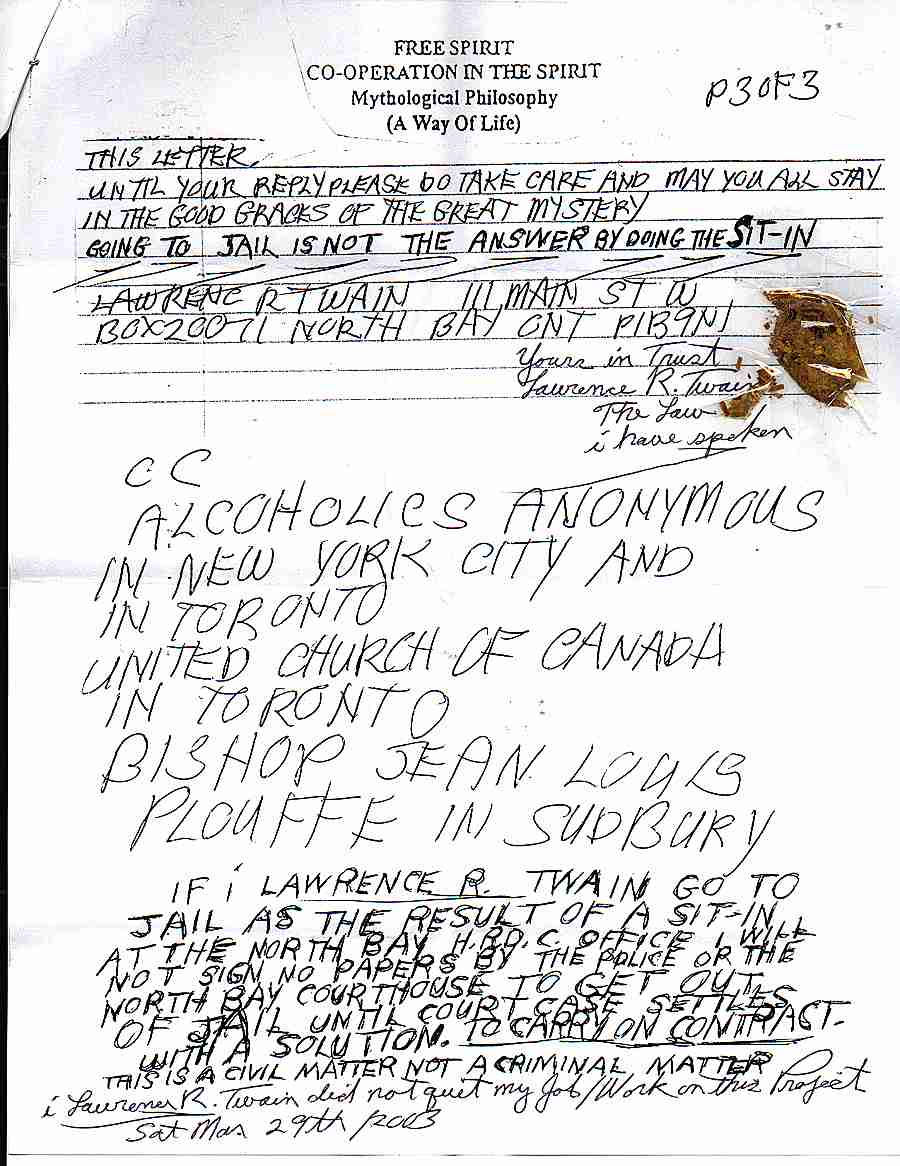 FREE SPIRIT
CO-OPERATION IN THE SPIRIT
Mythological Philosophy
(A Way Of Life)
P 3 OF 3
THIS LETTER.
UNTIL YOUR REPLY PLEASE DO TAKE CARE AND MAY YOU ALL STAY
IN THE GOOD GRACES OF THE GREAT MYSTERY
GOING TO JAIL IS NOT THE ANSWER BY DOING THE SIT-IN
LAWRENC R TWAIN 111 MAIN ST W
BOX 20071 NORTH BAY ONT P1B9N1
Yours in Trust
Lawrence R. Twain
The Law
i have spoken
CC
ALCOHOLICS ANONYMOUS
IN NEW YORK CITY AND
IN TORONTO
UNITED CHURCH OF CANADA
IN TORONTO
BISHOP JEAN LOUIS
PLOUFFE IN SUDBURY
IF i LAWRENCE R. TWAIN GO TO
JAIL AS THE RESULT OF A SIT-IN
AT THE NORTH BAY H.R.D.C. OFFICE I WILL
NOT SIGN NO PAPERS BY THE POLICE OR THE
NORTH BAY COURTHOUSE TO GET OUT
OF JAIL UNTIL COURT CASE SETTLES
WITH A SOLUTION. TO CARRY ON CONTRACT.
THIS IS A CIVIL MATTER NOT A CRIMINAL MATTER
i Lawrence R. Twain did not quit my Job/Work on this Project
Sat Mar 29th/2003